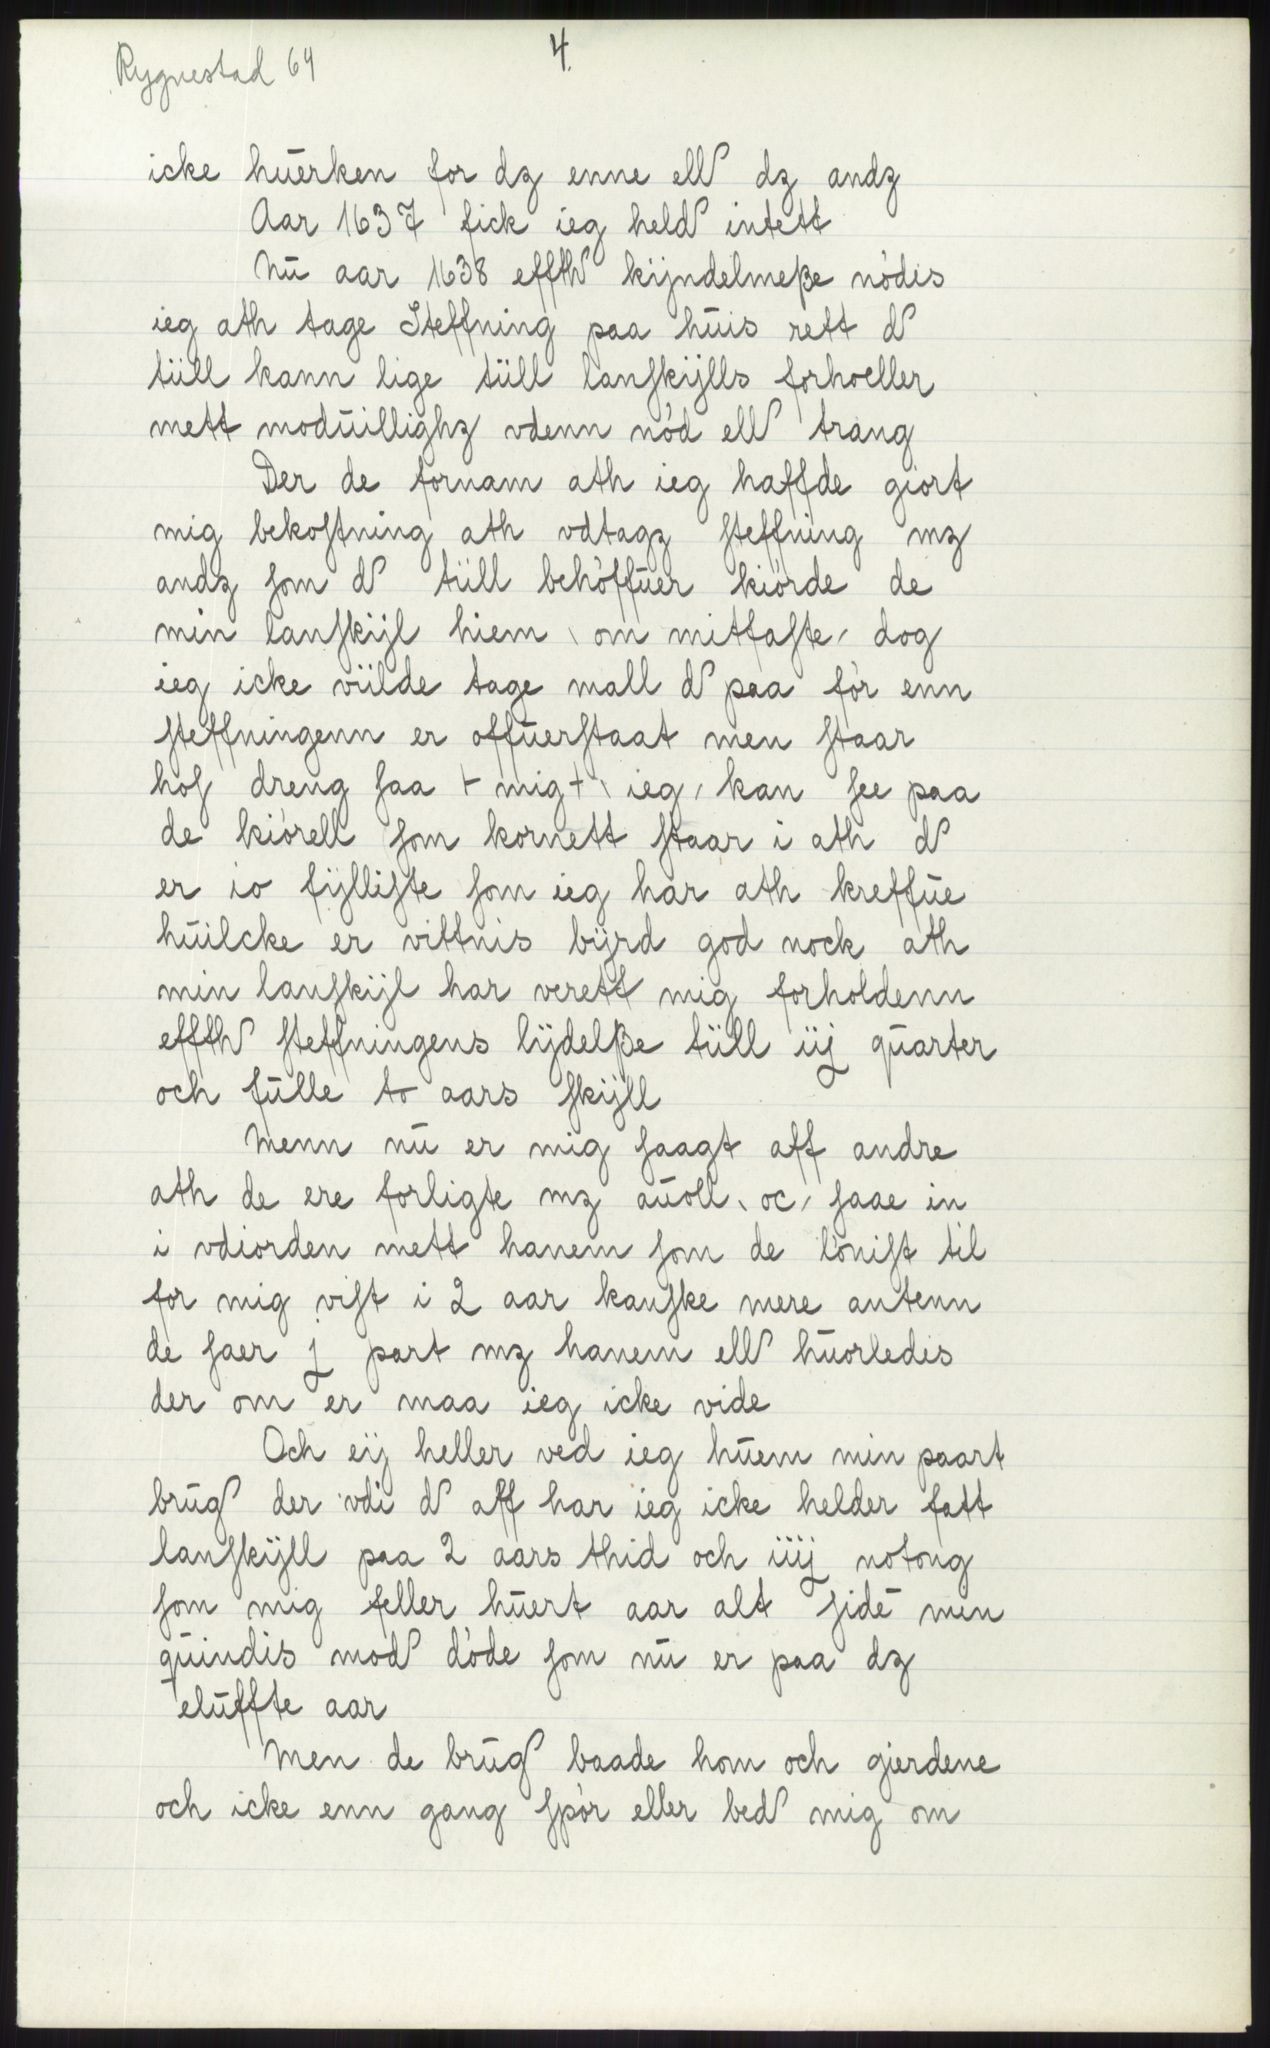 Rygnestad 64
4.
icke huerken for dz enne ell dz andz
Aar 1637 fick ieg held intett
Nu aar 1638 effth kijndelmeße nódis
ieg ath tage Steffning paa huis rett d
tüll kann lige tüll lanſkijlls forhoeller
mett moduillighz vdenn nód ell trang
Der de fornam ath ieg haffde giort
mig bekoſtning ath vdtagz ſteffning mz
andz ſom d tüll behóffuer kiórde de
min lanſkijl hiem \ om mitfaſte / dog
ieg icke vülde tage mall d paa fór enn
ſteffningenn er offuerſtaat men ſtaar
hoſ dreng ſaa + mig + \ ieg / kan ſee paa
de kiórell ſom kornett ſtaar i ath d
er io fijlliſte ſom ieg har ath kreffue
huilcke er vittnis bijrd god nock ath
min lanſkijl har verett mig forholdenn
effth ſteffningens lijdelße tüll iij quarter
och fulle to aars ſkijll
Menn nu er mig ſaagt aff andre
ath de ere forligte mz auoll \ oc / ſaae in
i vdiorden mett hanem ſom de lóniſt til
for mig viſt i 2 aar kanſke mere antenn
de ſaer j part mz hanem ell huorledis
der om er maa ieg icke vide
Och eij heller ved ieg huem min paart
brug der vdi d aff har ieg icke helder fatt
lanſkijll paa 2 aars thid och iiij notong
ſom mig feller huert aar alt ſidē men
quindis mod dóde ſom nu er paa dz
eluffte aar
Men de brug baade hom och gierdene
och icke enn gang ſpór eller bed mig om